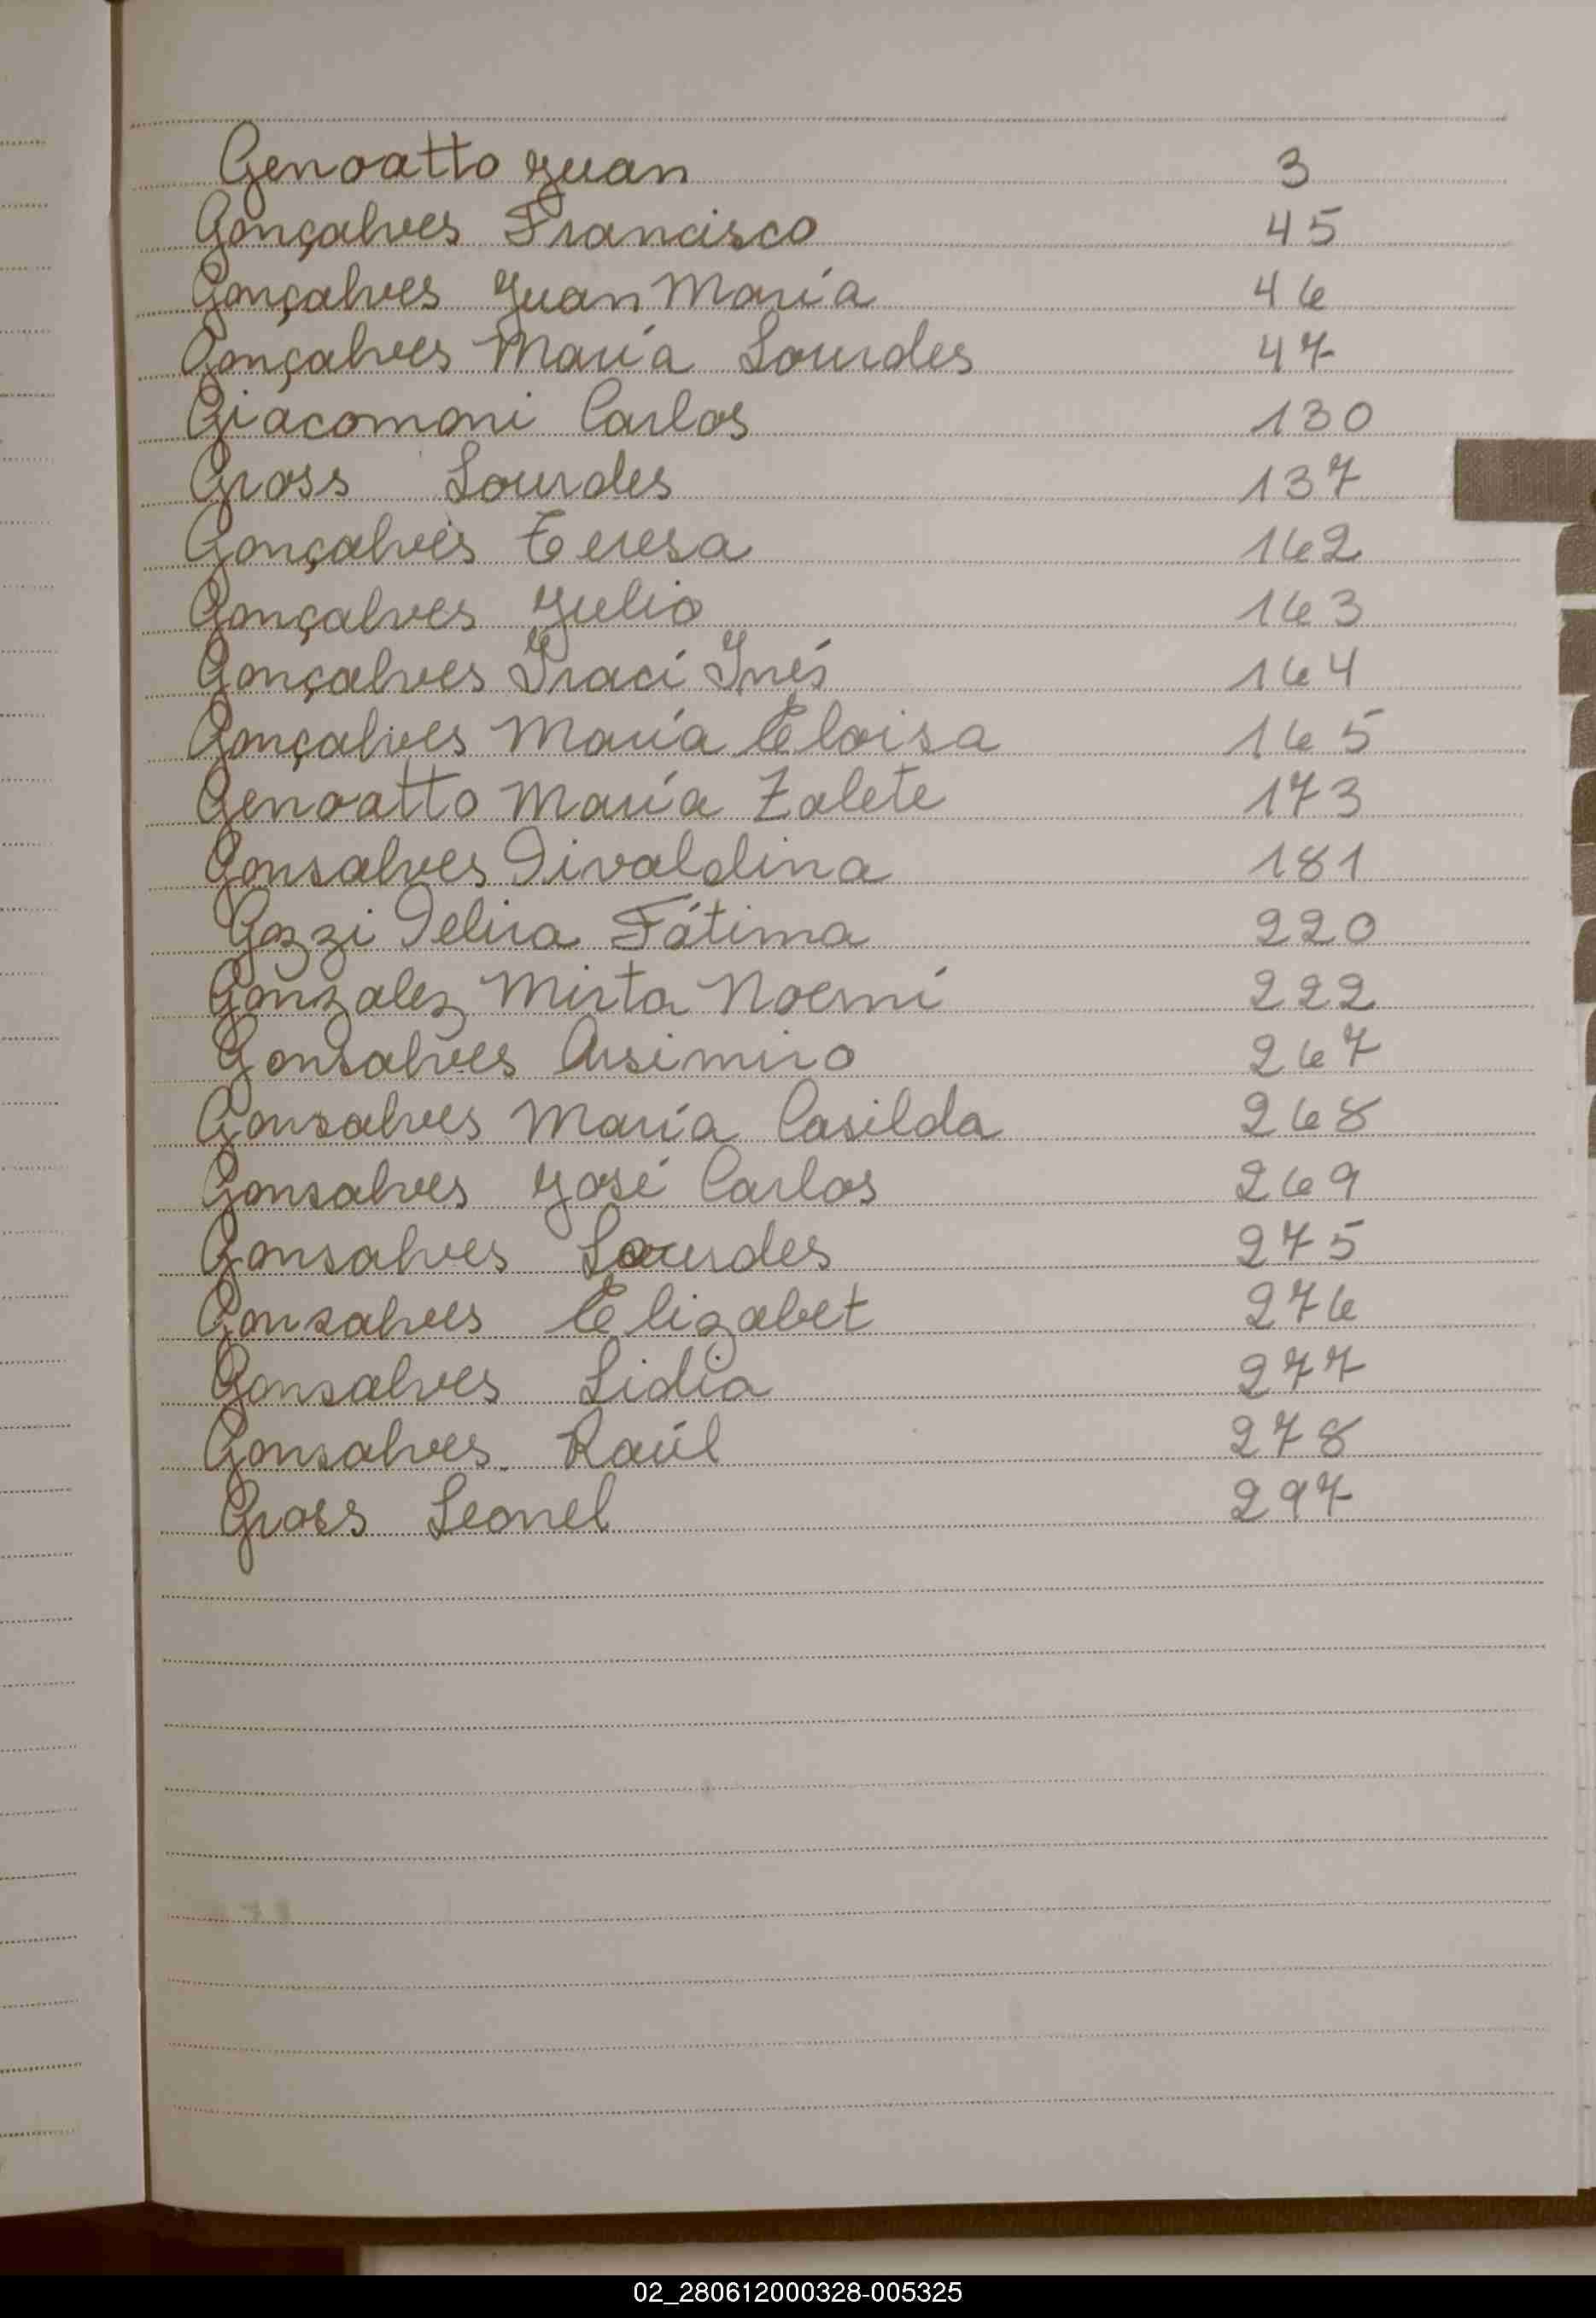 Genoatto Juan 3
Gonçalves Francisco 45
Gonçalves Juan María 46
Gonçalves María Lourdes 47
Giacomoni Carlos 130
Gross Lourdes 137
Gonçalves Teresa 162
Gonçalves Julio 163
Gonçalves Iraci Inés 164
Gonçalves María Eloisa 165
Genoatto María Zalete 173
Gonsalves Divaldina 181
Gozzi Delira Fátima 220
Gonzalez Mirta Noemí 222
Gonsalves Arsimiro 267
Gonsalves María Casilda 268
Gonsalves José Carlos 269
Gonsalves Lourdes 275
Gonsalves Elizabet 276
Gonsalves Lidia 277
Gonsalves Raúl 278
Gross Leonel 297
02_280612000328-005325